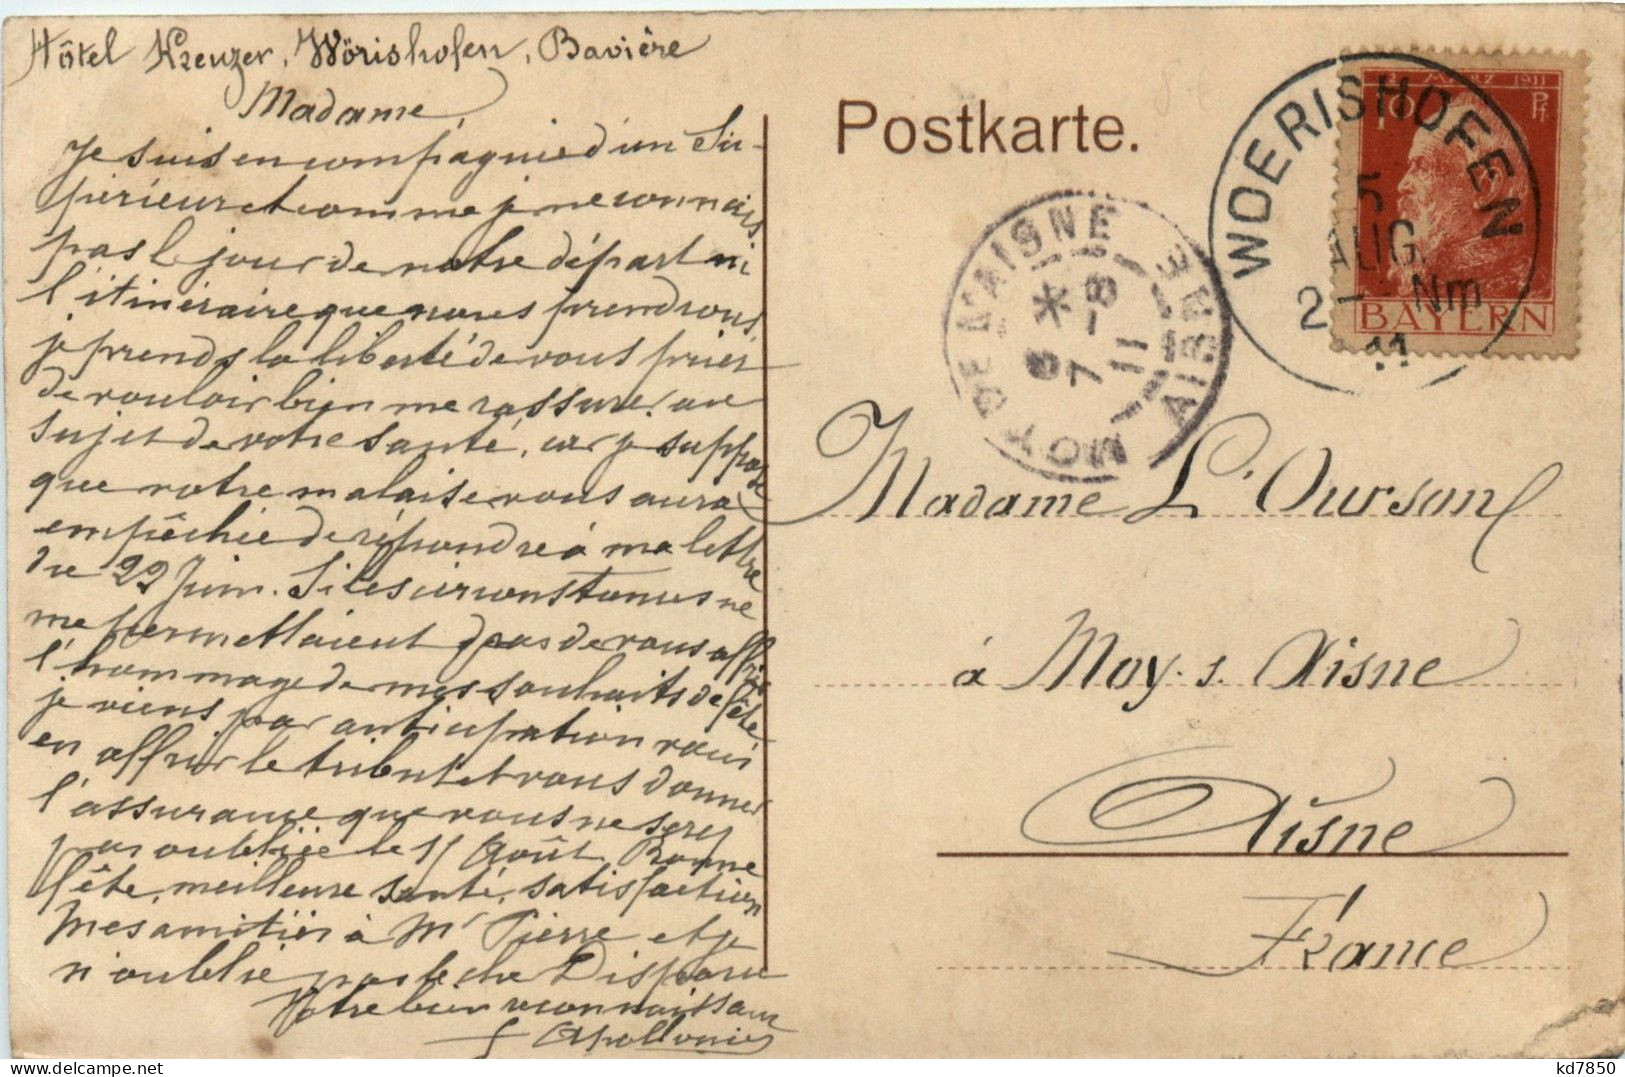 Hôtel Kreuzer, Wörishofen, Bavière
Madame,
Je suis en compagnie d'un Su-
périeur et comme je ne connais
pas le jour de notre départ ni
l'itinéraire que nous prendrons
je prends la liberté de vous prier
de vouloir bien me rassurer au
sujet de votre santé, car je suppose
que votre malaise vous aura
empêchée de répondre à ma lettre
du 22 Juin. Si les circonstances ne
me permettaient pas de vous offrir
l'hommage de mes souhaits de fête
je viens par anticipation vous
en offrir le tribut et vous donner
l'assurance que vous ne serez
pas oubliée le 15 Août. Bonne
fête, meilleure santé, satisfaction
Mes amitiés à Mr Pierre et je
n'oublie pas le che Disparu
Votre bien reconnaissant
f Apollonie
Postkarte.
12. MÄRZ 1911
10 Pf
BAYERN
WOERISHOFEN
5
AUG.
2- Nm
11
MOY DE L'AISNE
AISNE
8 * 7 -8
11
Madame L'Oursonl
à Moy. s. Aisne
Aisne
France
kd7850